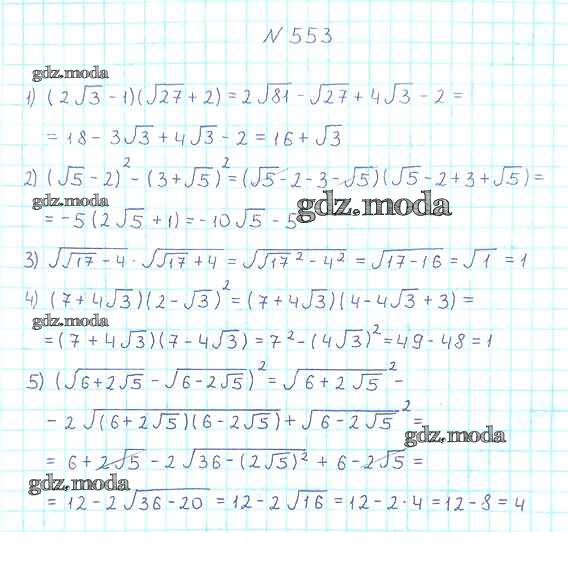 N 553
gdz.moda
1) (2√3 - 1)(√27 + 2) = 2√81 - √27 + 4√3 - 2 =
= 18 - 3√3 + 4√3 - 2 = 16 + √3
2) (√5 - 2)² - (3 + √5)² = (√5 - 2 - 3 - √5)(√5 - 2 + 3 + √5) =
gdz.moda
= -5(2√5 + 1) = -10√5 - 5
gdz.moda
3) √(√17 - 4) · √(√17 + 4) = √(√17² - 4²) = √(17 - 16) = √1 = 1
4) (7 + 4√3)(2 - √3)² = (7 + 4√3)(4 - 4√3 + 3) =
gdz.moda
= (7 + 4√3)(7 - 4√3) = 7² - (4√3)² = 49 - 48 = 1
5) (√(6 + 2√5) - √(6 - 2√5))² = √(6 + 2√5)² -
- 2√((6 + 2√5)(6 - 2√5)) + √(6 - 2√5)² =
gdz.moda
= 6 + 2√5 - 2√(36 - (2√5)²) + 6 - 2√5 =
gdz.moda
= 12 - 2√(36 - 20) = 12 - 2√16 = 12 - 2·4 = 12 - 8 = 4